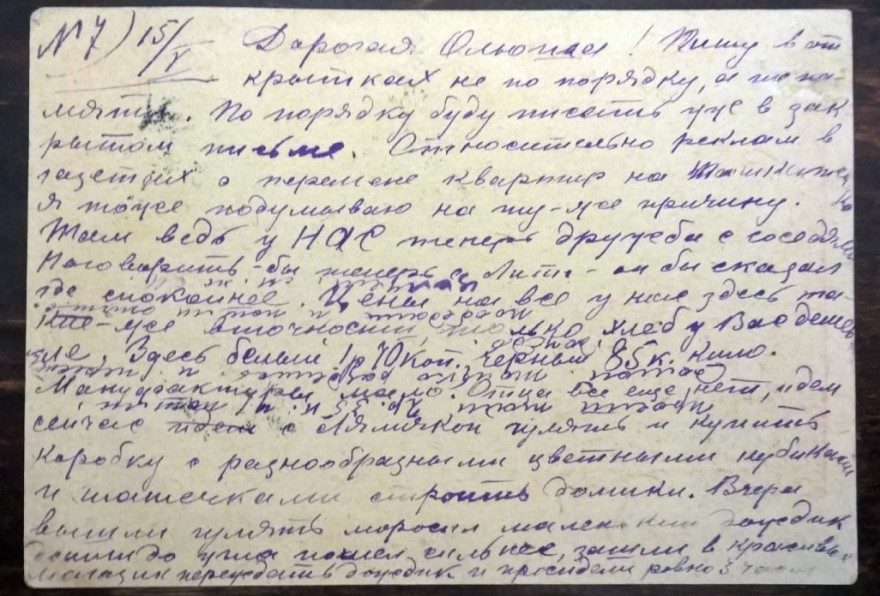 № 7) 15/V Дорогая Олюша! Пишу в от
крытках не по порядку, а по па-
мяти. По порядку буду писать уже в зак
рытом письме. Относительно реклам в
газетах о перемене квартир на
я тоже подумываю на ту-же причину.
Там ведь у НАС теперь дружба с соседями
Поговорить-бы теперь с - он бы сказал
где спокойнее. Цены на все у нас здесь та-
кие-же вточности только хлеб у Вас дешев
ле, Здесь белый 1р 70коп. черный 85к. кило.
Мануфактуры мало. Отца все еще нет, идем
сейчас с Лялячкой гулять и купить
коробку с разнообразными цветными кубиками
и строить домики. Вчера
вышли гулять моросил маленький дождик
дошли до угла пошел сильнее, зашли в красивый
переждать дождик и просидели ровно 3 часа